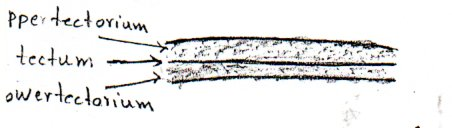 ppertectorium
tectum
owertectorium